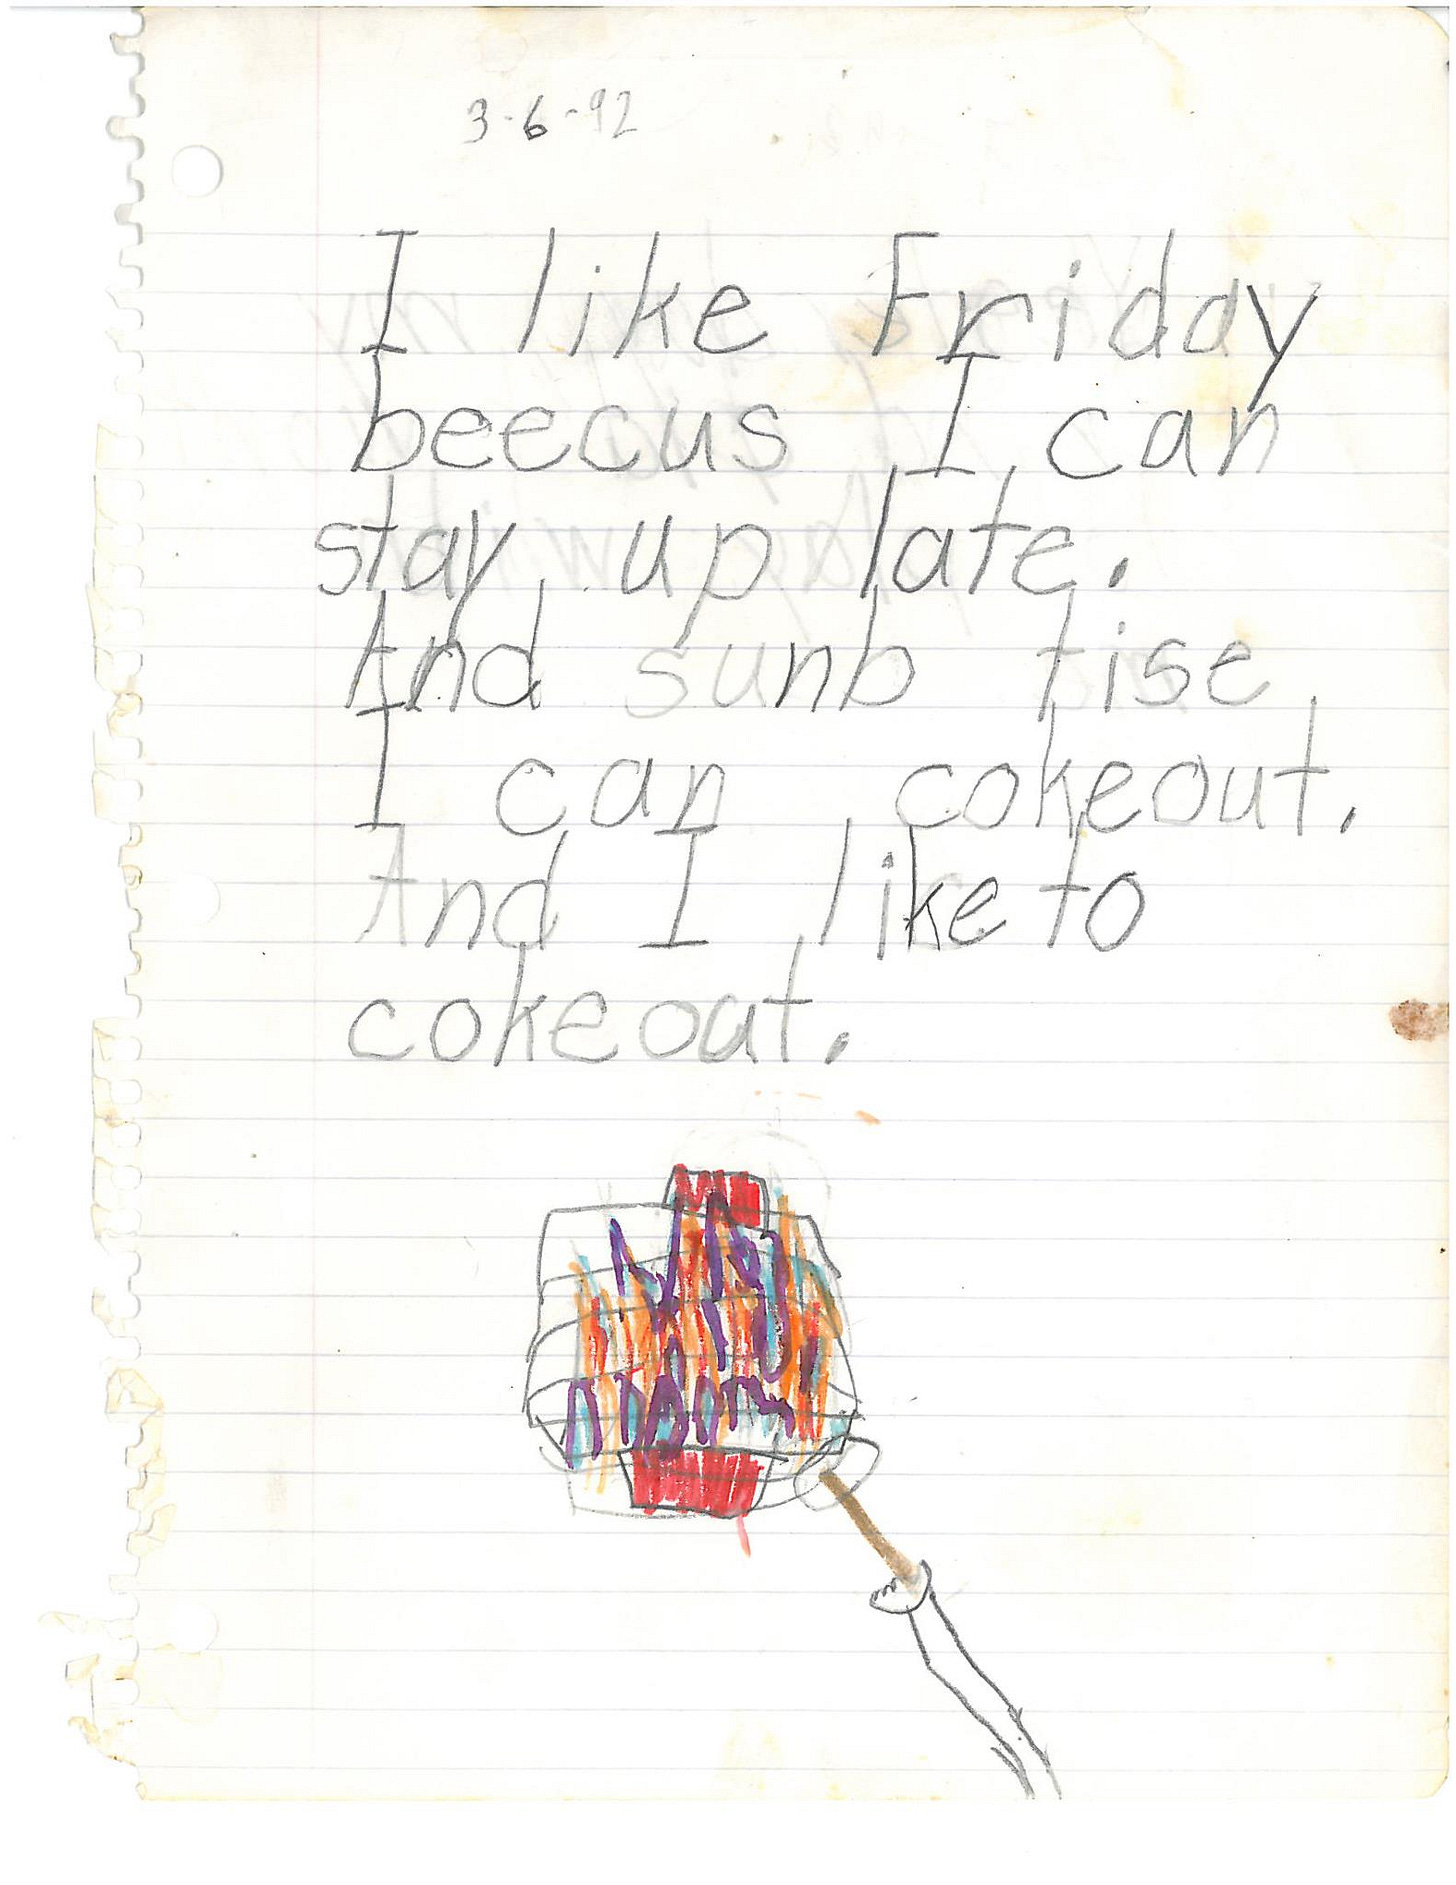 3-6-92
I like Friday
beecus I can
stay up late.
And sunb tise
I can cokeout.
And I like to
cokeout.